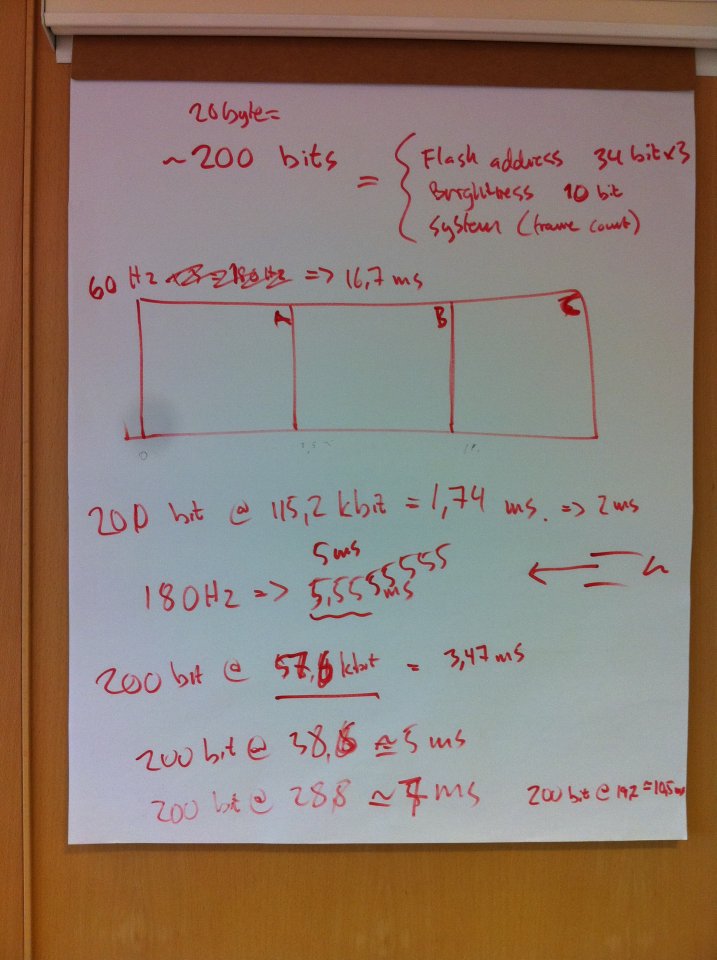 20byte=
~200 bits = { Flash address 34 bit x 3
Brightness 10 bit
System (frame count)
60 Hz => 16,7 ms
A B C
0
200 bit @ 115,2 kbit = 1,74 ms. => 2ms
5ms
180Hz => 5,55555555 ms
200 bit @ 57,6 kbit = 3,47 ms
200 bit @ 38,6 ≈ 5 ms
200 bit @ 28,8 ≃ 7 ms 200 bit @ 19,2 = 10,5 ms